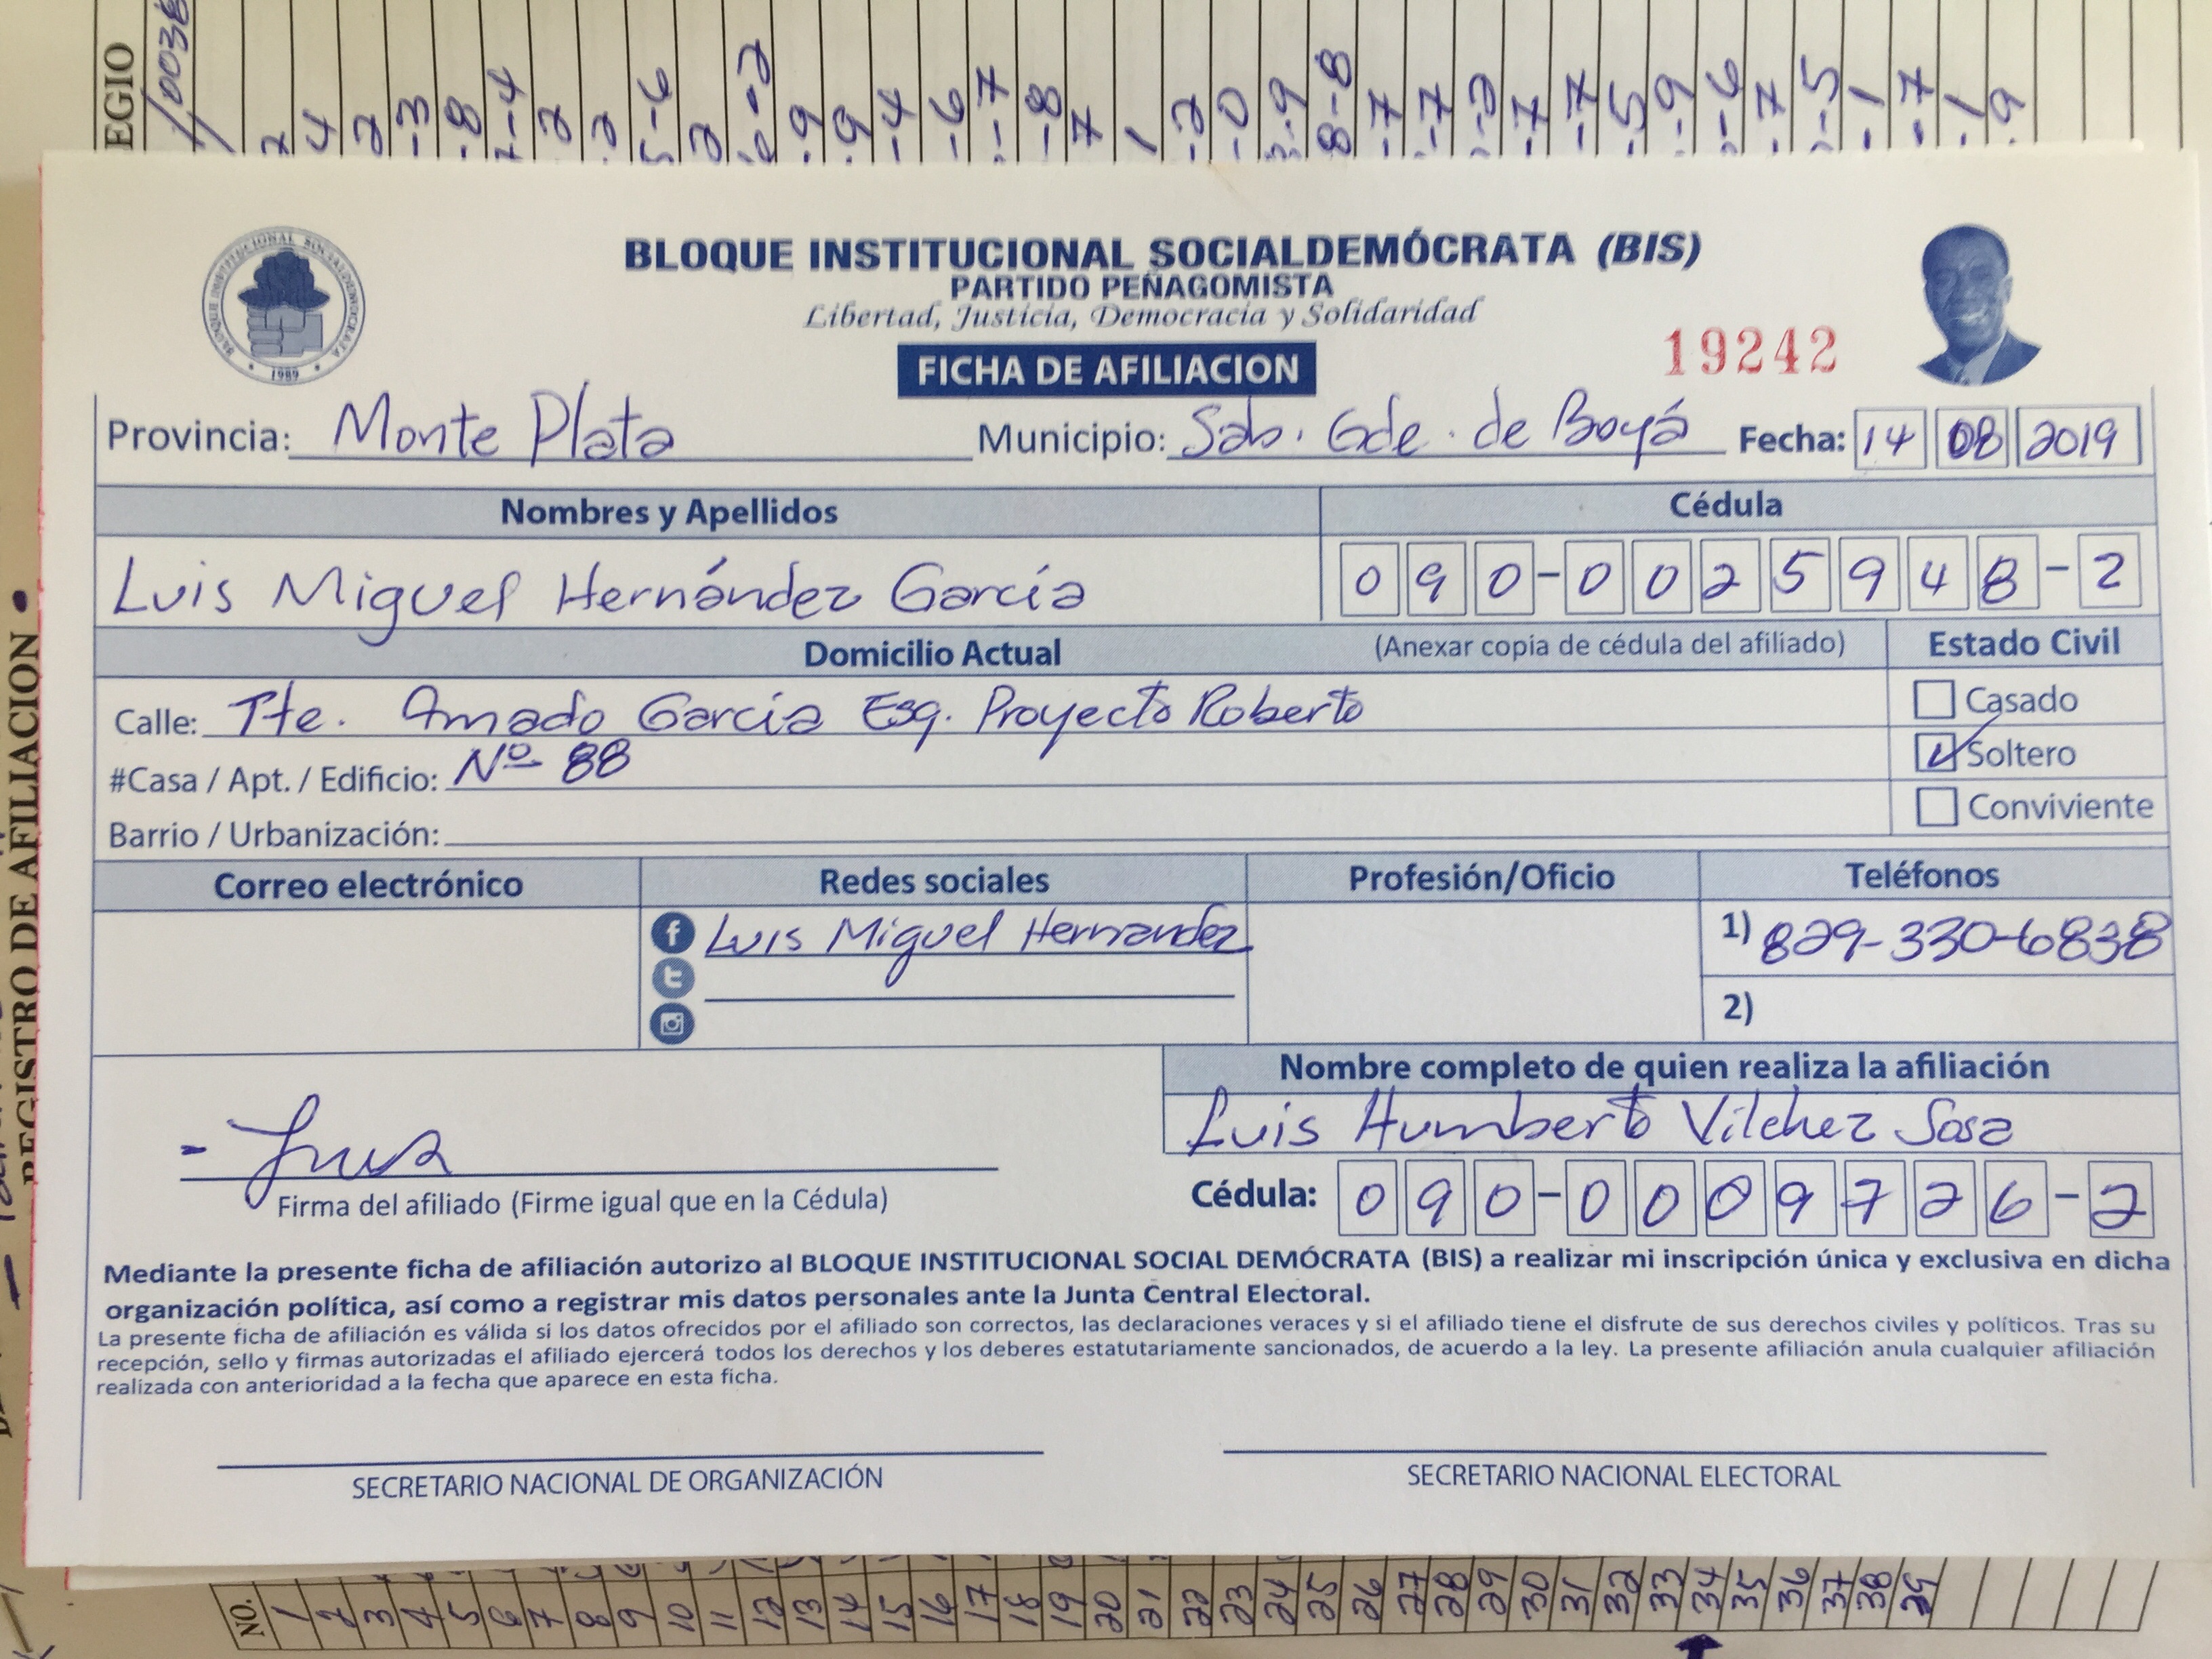 EGIO
BLOQUE INSTITUCIONAL SOCIALDEMÓCRATA (BIS)
PARTIDO PEÑAGOMISTA
Libertad, Justicia, Democracia y Solidaridad
BLOQUE INSTITUCIONAL SOCIALDEMOCRATA
1989
19242
FICHA DE AFILIACION
Provincia: Monte Plata Municipio: Sab. Gde. de Boyá Fecha: 14 08 2019
Nombres y Apellidos Cédula
Luis Miguel Hernández García 090-0025948-2
Domicilio Actual (Anexar copia de cédula del afiliado) Estado Civil
Calle: Tte. Amado García Esq. Proyecto Roberto Casado
#Casa / Apt. / Edificio: Nº 88 Soltero
Barrio / Urbanización: Conviviente
Correo electrónico Redes sociales Profesión/Oficio Teléfonos
Luis Miguel Hernandez 1) 829-330-6838
2)
Nombre completo de quien realiza la afiliación
Luis Humberto Vilchez Sosa
Firma del afiliado (Firme igual que en la Cédula) Cédula: 090-0009726-2
Mediante la presente ficha de afiliación autorizo al BLOQUE INSTITUCIONAL SOCIAL DEMÓCRATA (BIS) a realizar mi inscripción única y exclusiva en dicha
organización política, así como a registrar mis datos personales ante la Junta Central Electoral.
La presente ficha de afiliación es válida si los datos ofrecidos por el afiliado son correctos, las declaraciones veraces y si el afiliado tiene el disfrute de sus derechos civiles y políticos. Tras su
recepción, sello y firmas autorizadas el afiliado ejercerá todos los derechos y los deberes estatutariamente sancionados, de acuerdo a la ley. La presente afiliación anula cualquier afiliación
realizada con anterioridad a la fecha que aparece en esta ficha.
SECRETARIO NACIONAL DE ORGANIZACIÓN SECRETARIO NACIONAL ELECTORAL
REGISTRO DE AFILIACION
NO. 1 2 3 4 5 6 7 8 9 10 11 12 13 14 15 16 17 18 19 20 21 22 23 24 25 26 27 28 29 30 31 32 33 34 35 36 37 38 39